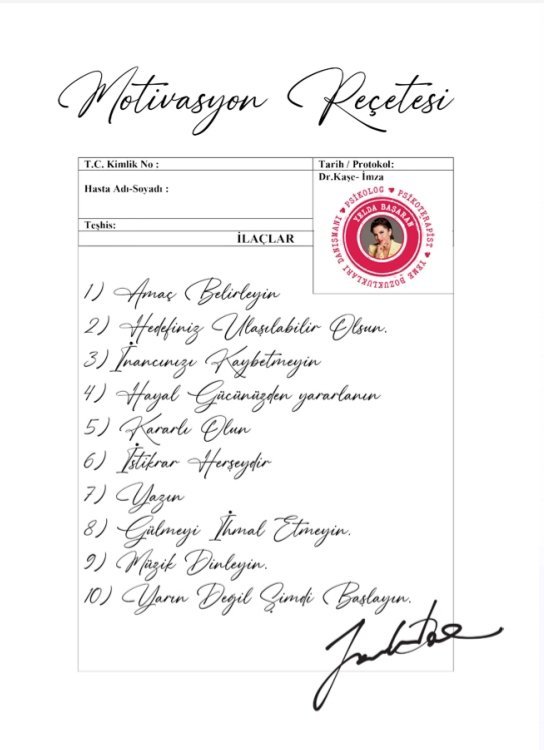 Motivasyon Reçetesi
T.C. Kimlik No :
Tarih / Protokol:
Dr.Kaşe- İmza
Hasta Adı-Soyadı :
PSİKOLOG ♥ PSİKOTERAPİST ♥ YEME BOZUKLUKLARI DANIŞMANI ♥
YELDA BAŞARAN
Teşhis:
İLAÇLAR
1) Amaç Belirleyin
2) Hedefiniz Ulaşılabilir Olsun.
3) İnancınızı Kaybetmeyin
4) Hayal Gücünüzden yararlanın
5) Kararlı Olun
6) İstikrar Herşeydir
7) Yazın
8) Gülmeyi İhmal Etmeyin.
9) Müzik Dinleyin.
10) Yarın Değil Şimdi Başlayın.